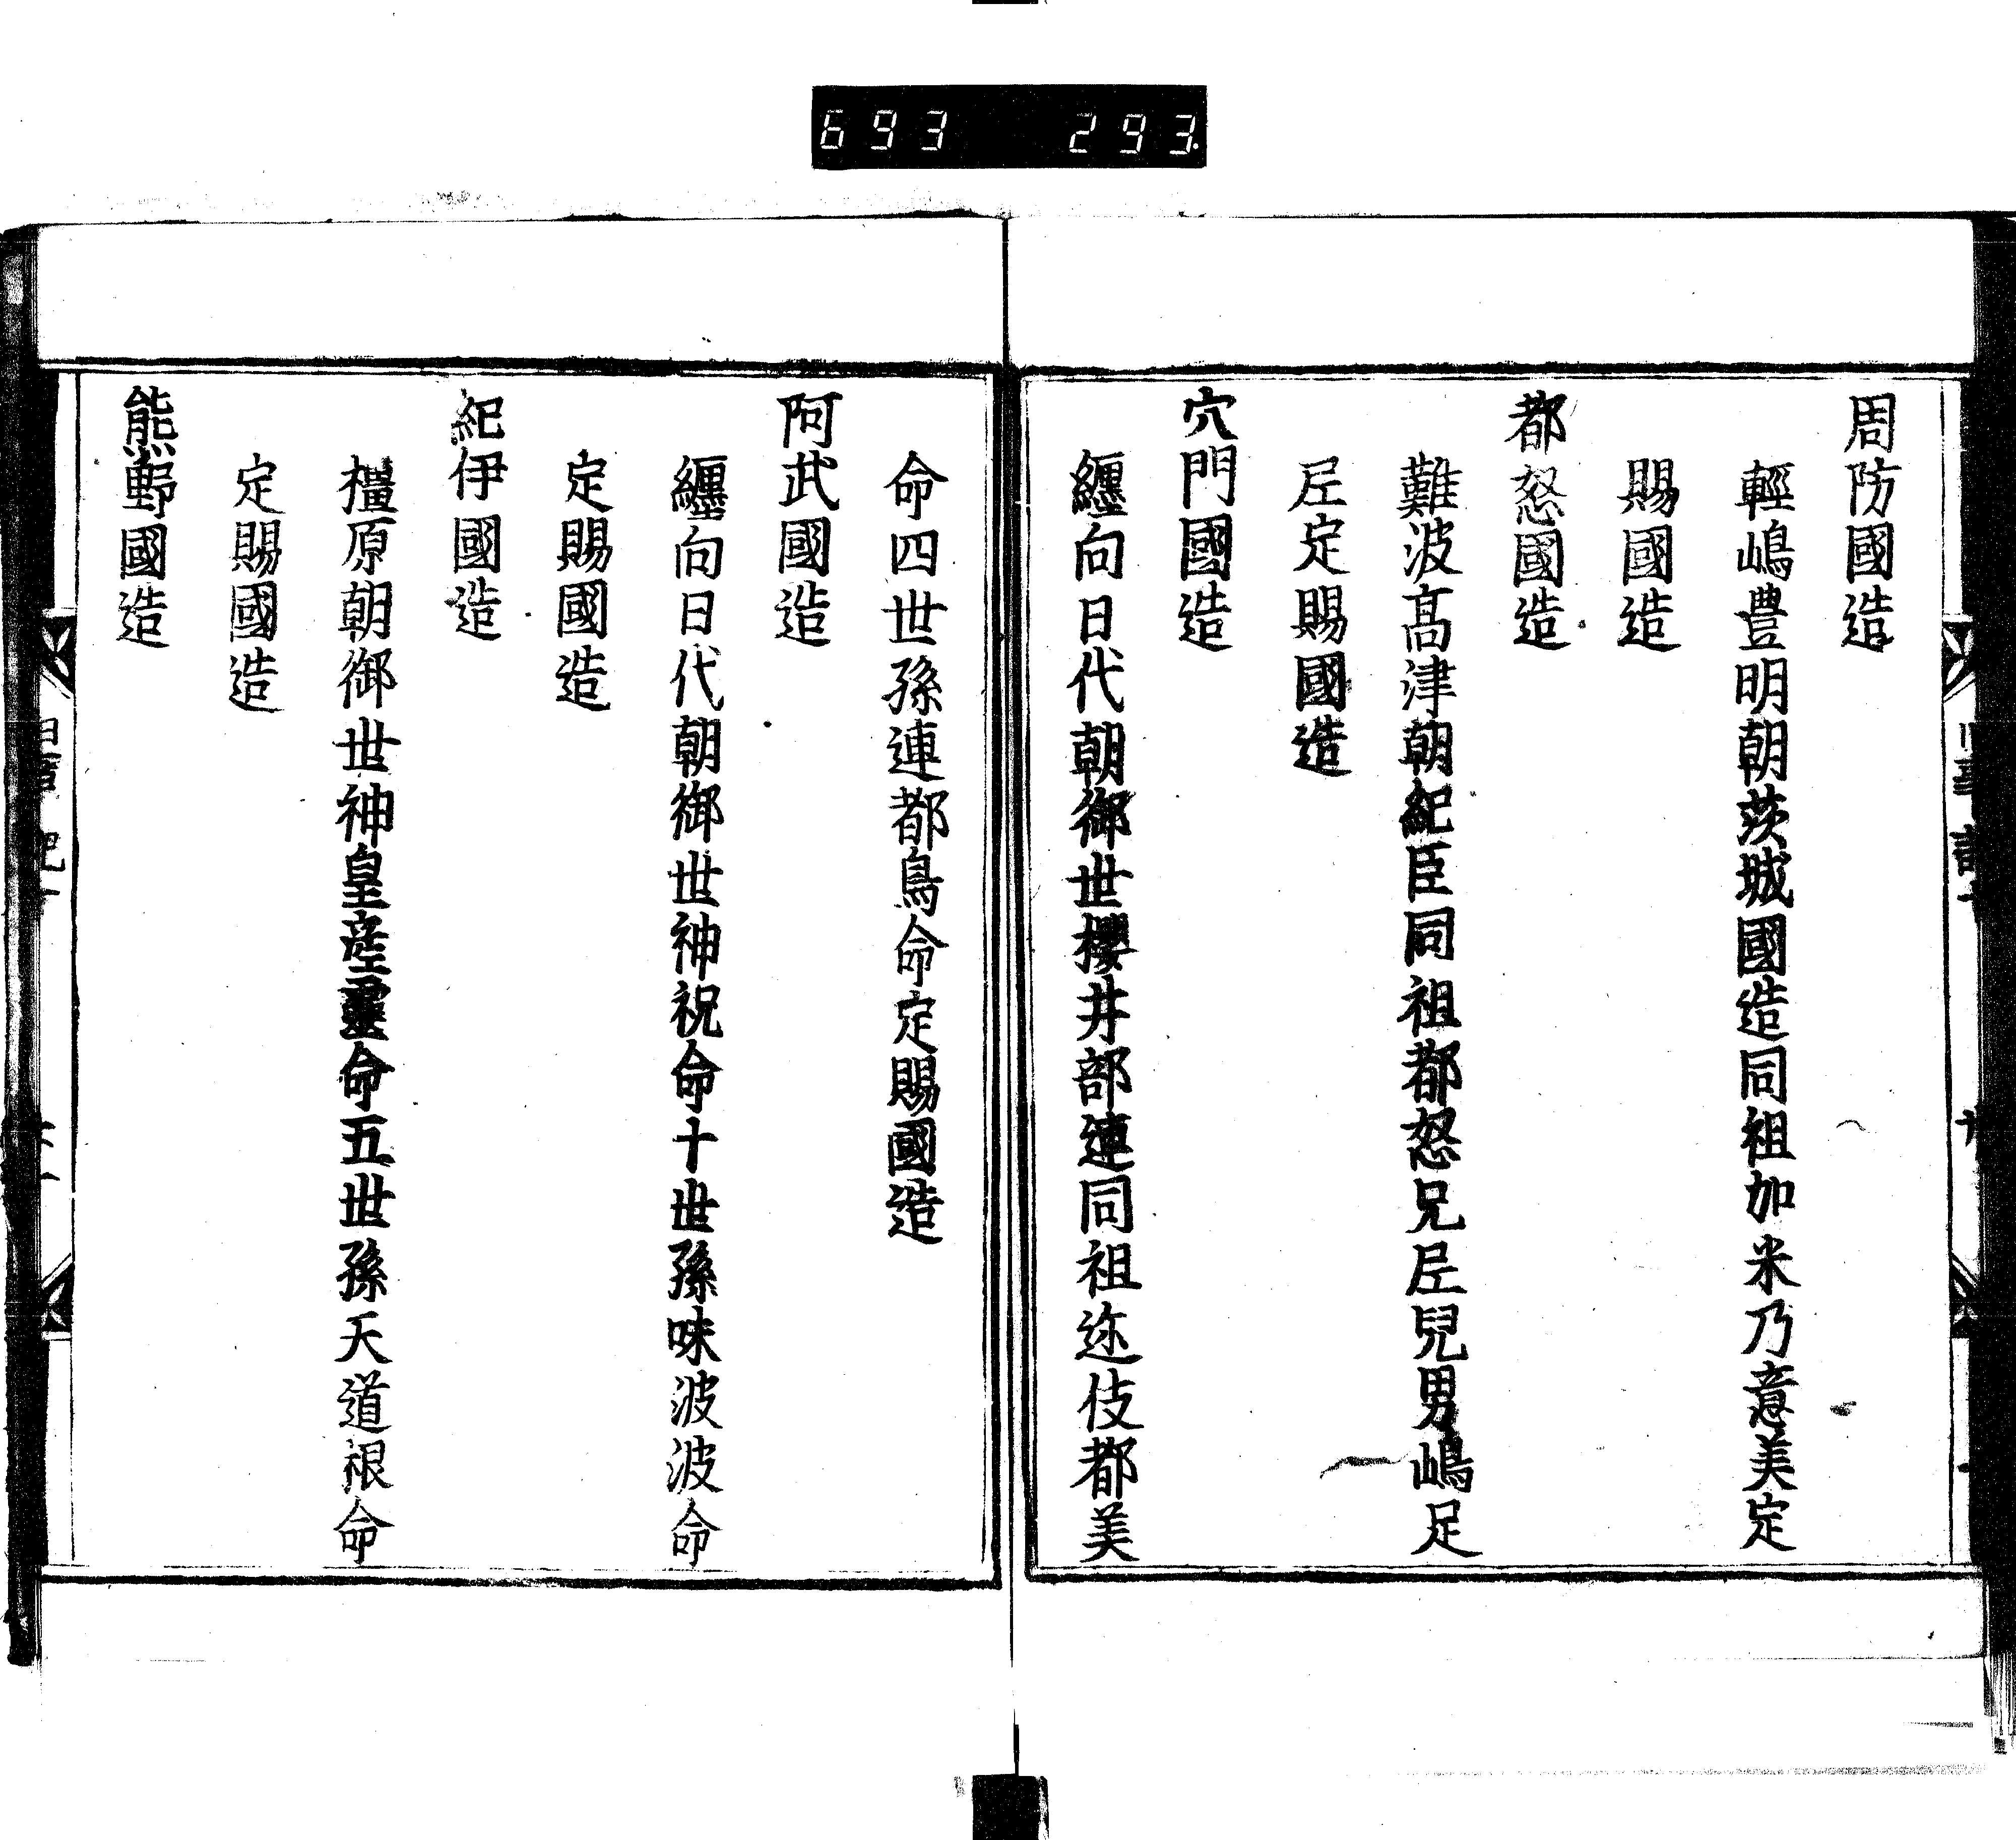 693 293
周防國造
輕嶋豊明朝茨城國造同祖加米乃意美定
賜國造
都怒國造
難波髙津朝紀臣同祖都怒兄𡱈兒男嶋足
𡱈定賜國造
穴門國造
纒向日代朝御世櫻井部連同祖迩伎都美
命四世孫連都鳥命定賜國造
阿武國造
纒向日代朝御世神祝命十世孫味波波命
定賜國造
紀伊國造
橿原朝御世神皇産靈命五世孫天道根命
定賜國造
熊野國造